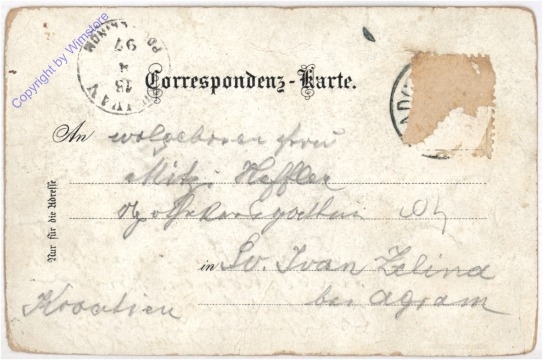 Copyright by Wimstore
97
4
13
Correspondenz-Karte.
An wolgeboren Frau
Mitzi Heffler
Apothekersgattin
in Sv. Ivan Zelina
bei Agram
Kroatien
Nur für die Adresse